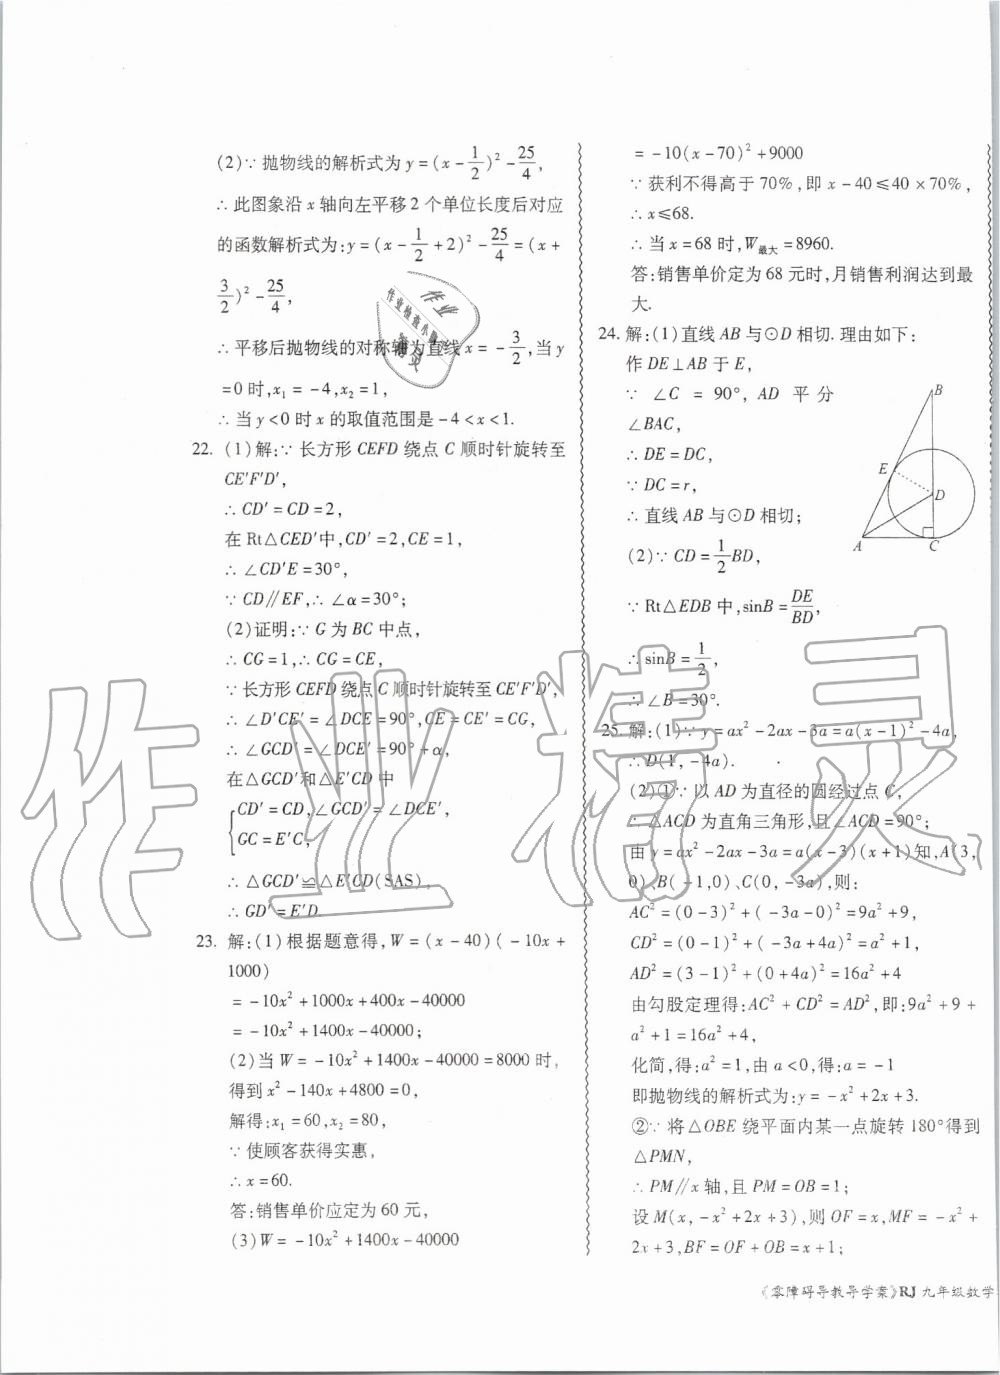 (2)∵ 抛物线的解析式为 y=(x-1/2)²-25/4,
∴ 此图象沿 x 轴向左平移 2 个单位长度后对应
的函数解析式为:y=(x-1/2+2)²-25/4=(x+
3/2)²-25/4,
∴ 平移后抛物线的对称轴为直线 x=-3/2,当 y
=0 时,x₁=-4,x₂=1,
∴ 当 y<0 时 x 的取值范围是 -4<x<1.
22. (1)解:∵ 长方形 CEFD 绕点 C 顺时针旋转至
CE′F′D′,
∴ CD′=CD=2,
在 Rt△CED′中,CD′=2,CE=1,
∴ ∠CD′E=30°,
∵ CD∥EF,∴ ∠α=30°;
(2)证明:∵ G 为 BC 中点,
∴ CG=1,∴ CG=CE,
∵ 长方形 CEFD 绕点 C 顺时针旋转至 CE′F′D′,
∴ ∠D′CE′=∠DCE=90°,CE=CE′=CG,
∴ ∠GCD′=∠DCE′=90°+α,
在△GCD′和△E′CD 中
CD′=CD,∠GCD′=∠DCE′,
GC=E′C,
∴ △GCD′≌△E′CD(SAS),
∴ GD′=E′D.
23. 解:(1)根据题意得,W=(x-40)(-10x+
1000)
=-10x²+1000x+400x-40000
=-10x²+1400x-40000;
(2)当 W=-10x²+1400x-40000=8000 时,
得到 x²-140x+4800=0,
解得:x₁=60,x₂=80,
∵ 使顾客获得实惠,
∴ x=60.
答:销售单价应定为 60 元,
(3)W=-10x²+1400x-40000
=-10(x-70)²+9000
∵ 获利不得高于 70%,即 x-40≤40×70%,
∴ x≤68.
∴ 当 x=68 时,W最大=8960.
答:销售单价定为 68 元时,月销售利润达到最
大.
24. 解:(1)直线 AB 与⊙D 相切. 理由如下:
作 DE⊥AB 于 E,
∵ ∠C = 90°, AD 平 分
∠BAC,
∴ DE=DC,
∵ DC=r,
∴ 直线 AB 与⊙D 相切;
(2)∵ CD=1/2BD,
∵ Rt△EDB 中,sinB=DE/BD,
∴ sinB=1/2,
∴ ∠B=30°.
B
E
D
A
C
25. 解:(1)∵ y=ax²-2ax-3a=a(x-1)²-4a,
∴ D(1,-4a).
(2)①∵ 以 AD 为直径的圆经过点 C,
∴ △ACD 为直角三角形,且∠ACD=90°;
由 y=ax²-2ax-3a=a(x-3)(x+1)知,A(3,
0)、B(-1,0)、C(0,-3a),则:
AC²=(0-3)²+(-3a-0)²=9a²+9,
CD²=(0-1)²+(-3a+4a)²=a²+1,
AD²=(3-1)²+(0+4a)²=16a²+4
由勾股定理得:AC²+CD²=AD²,即:9a²+9+
a²+1=16a²+4,
化简,得:a²=1,由 a<0,得:a=-1
即抛物线的解析式为:y=-x²+2x+3.
②∵ 将△OBE 绕平面内某一点旋转 180°得到
△PMN,
∴ PM∥x 轴,且 PM=OB=1;
设 M(x,-x²+2x+3),则 OF=x,MF=-x²+
2x+3,BF=OF+OB=x+1;
《零障碍导教导学案》RJ 九年级数学
作业精灵
作业
作业检查小